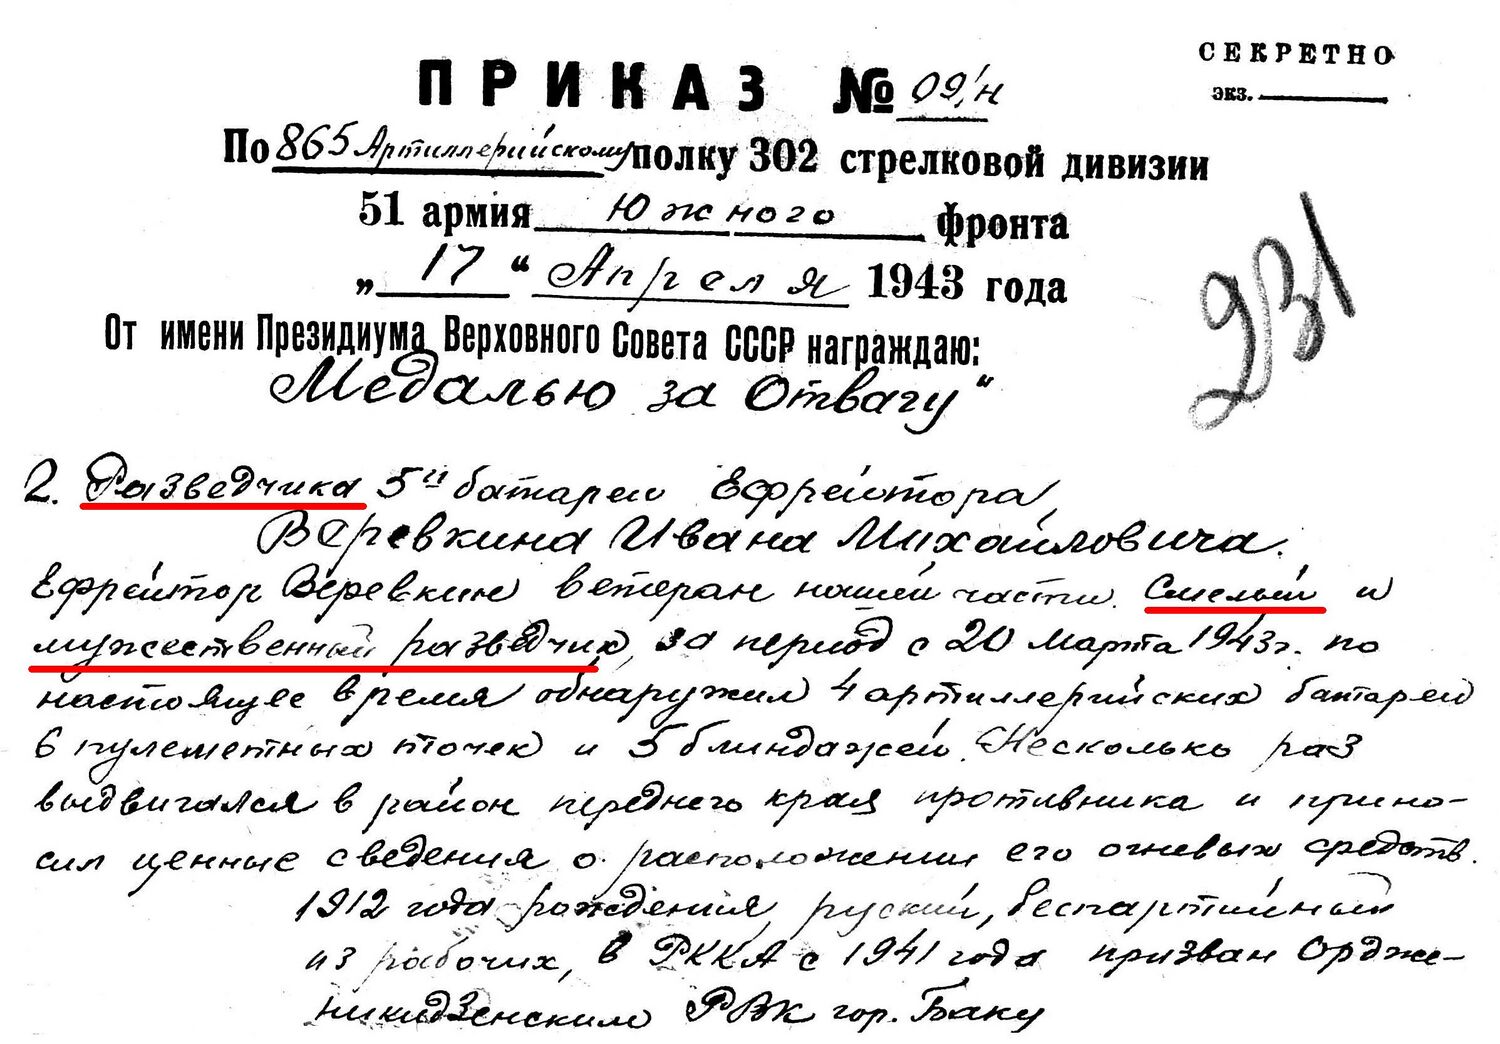 СЕКРЕТНО
экз.
ПРИКАЗ № 09/н
По 865 Артиллерийскому полку 302 стрелковой дивизии
51 армия Южного фронта
„17“ Апреля 1943 года
231
От имени Президиума Верховного Совета СССР награждаю:
Медалью за Отвагу"
2. Разведчика 5й батареи Ефрейтора,
Веревкина Ивана Михайловича.
Ефрейтор Веревкин ветеран нашей части. Смелый и
мужественный разведчик, за период с 20 марта 1943г. по
настоящее время обнаружил 4 артиллерийских батареи
6 пулеметных точек и 5 блиндажей. Несколько раз
выдвигался в район переднего края противника и прино-
сил ценные сведения о расположении его огневых средств.
1912 года рождения, руский, беспартийный
из рабочих, в РККА с 1941 года призван Ордже-
никидзенским РВК гор. Баку